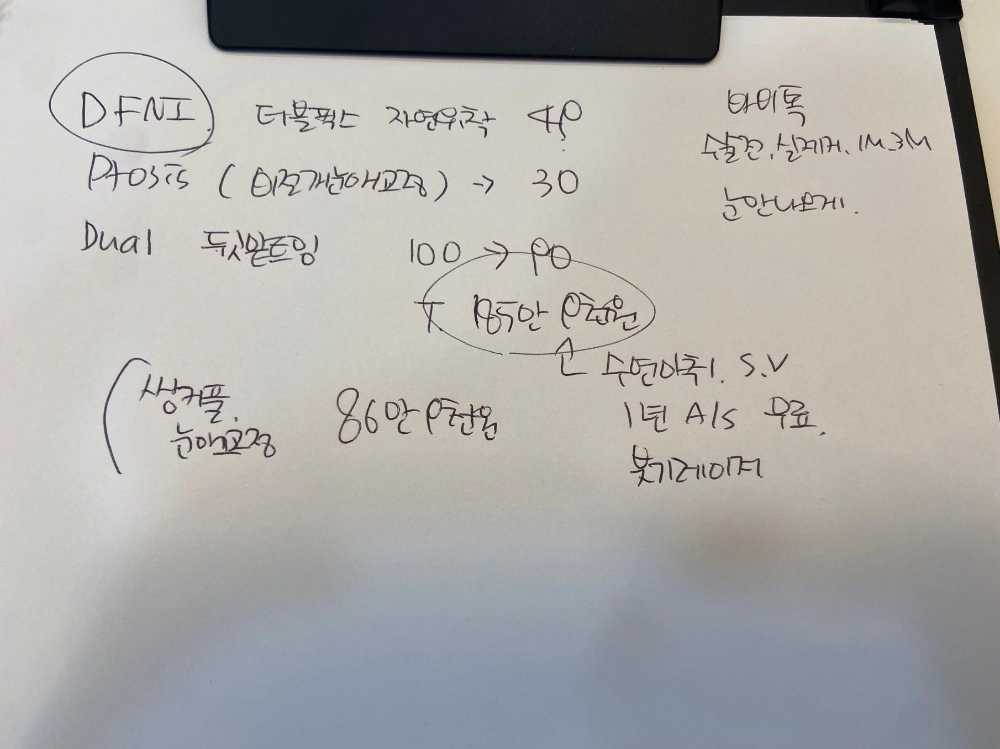 DFNI 더블픽스 자연유착 49
Ptosis ( 비절개눈매교정 ) → 30
Dual 뒤,밑트임 100 → 90
T 185만 9천원
수면마취. S.V
1년 A/S 무료.
붓기레이저
쌍커플. 86만 9천원
눈매교정
바비톡
수술전, 실제거. 1M. 3M
눈안나오게.